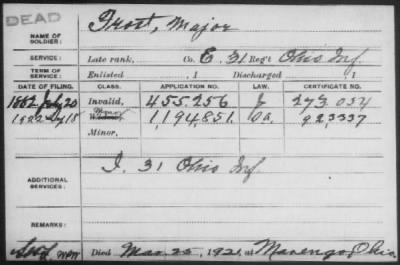 DEAD
NAME OF SOLDIER: Frost, Major
SERVICE: Late rank, Co. E. 31 Reg't Ohio Inf.
TERM OF SERVICE: Enlisted , 1 Discharged , 1
DATE OF FILING. CLASS. APPLICATION NO. LAW. CERTIFICATE NO.
1882 July 20 Invalid, 455.256 273.034
1922 15 1,194,851. 923337
Minor,
ADDITIONAL SERVICES: I. 31 Ohio Inf.
REMARKS:
Died Mar. 25, 1921, at Marengo Ohio